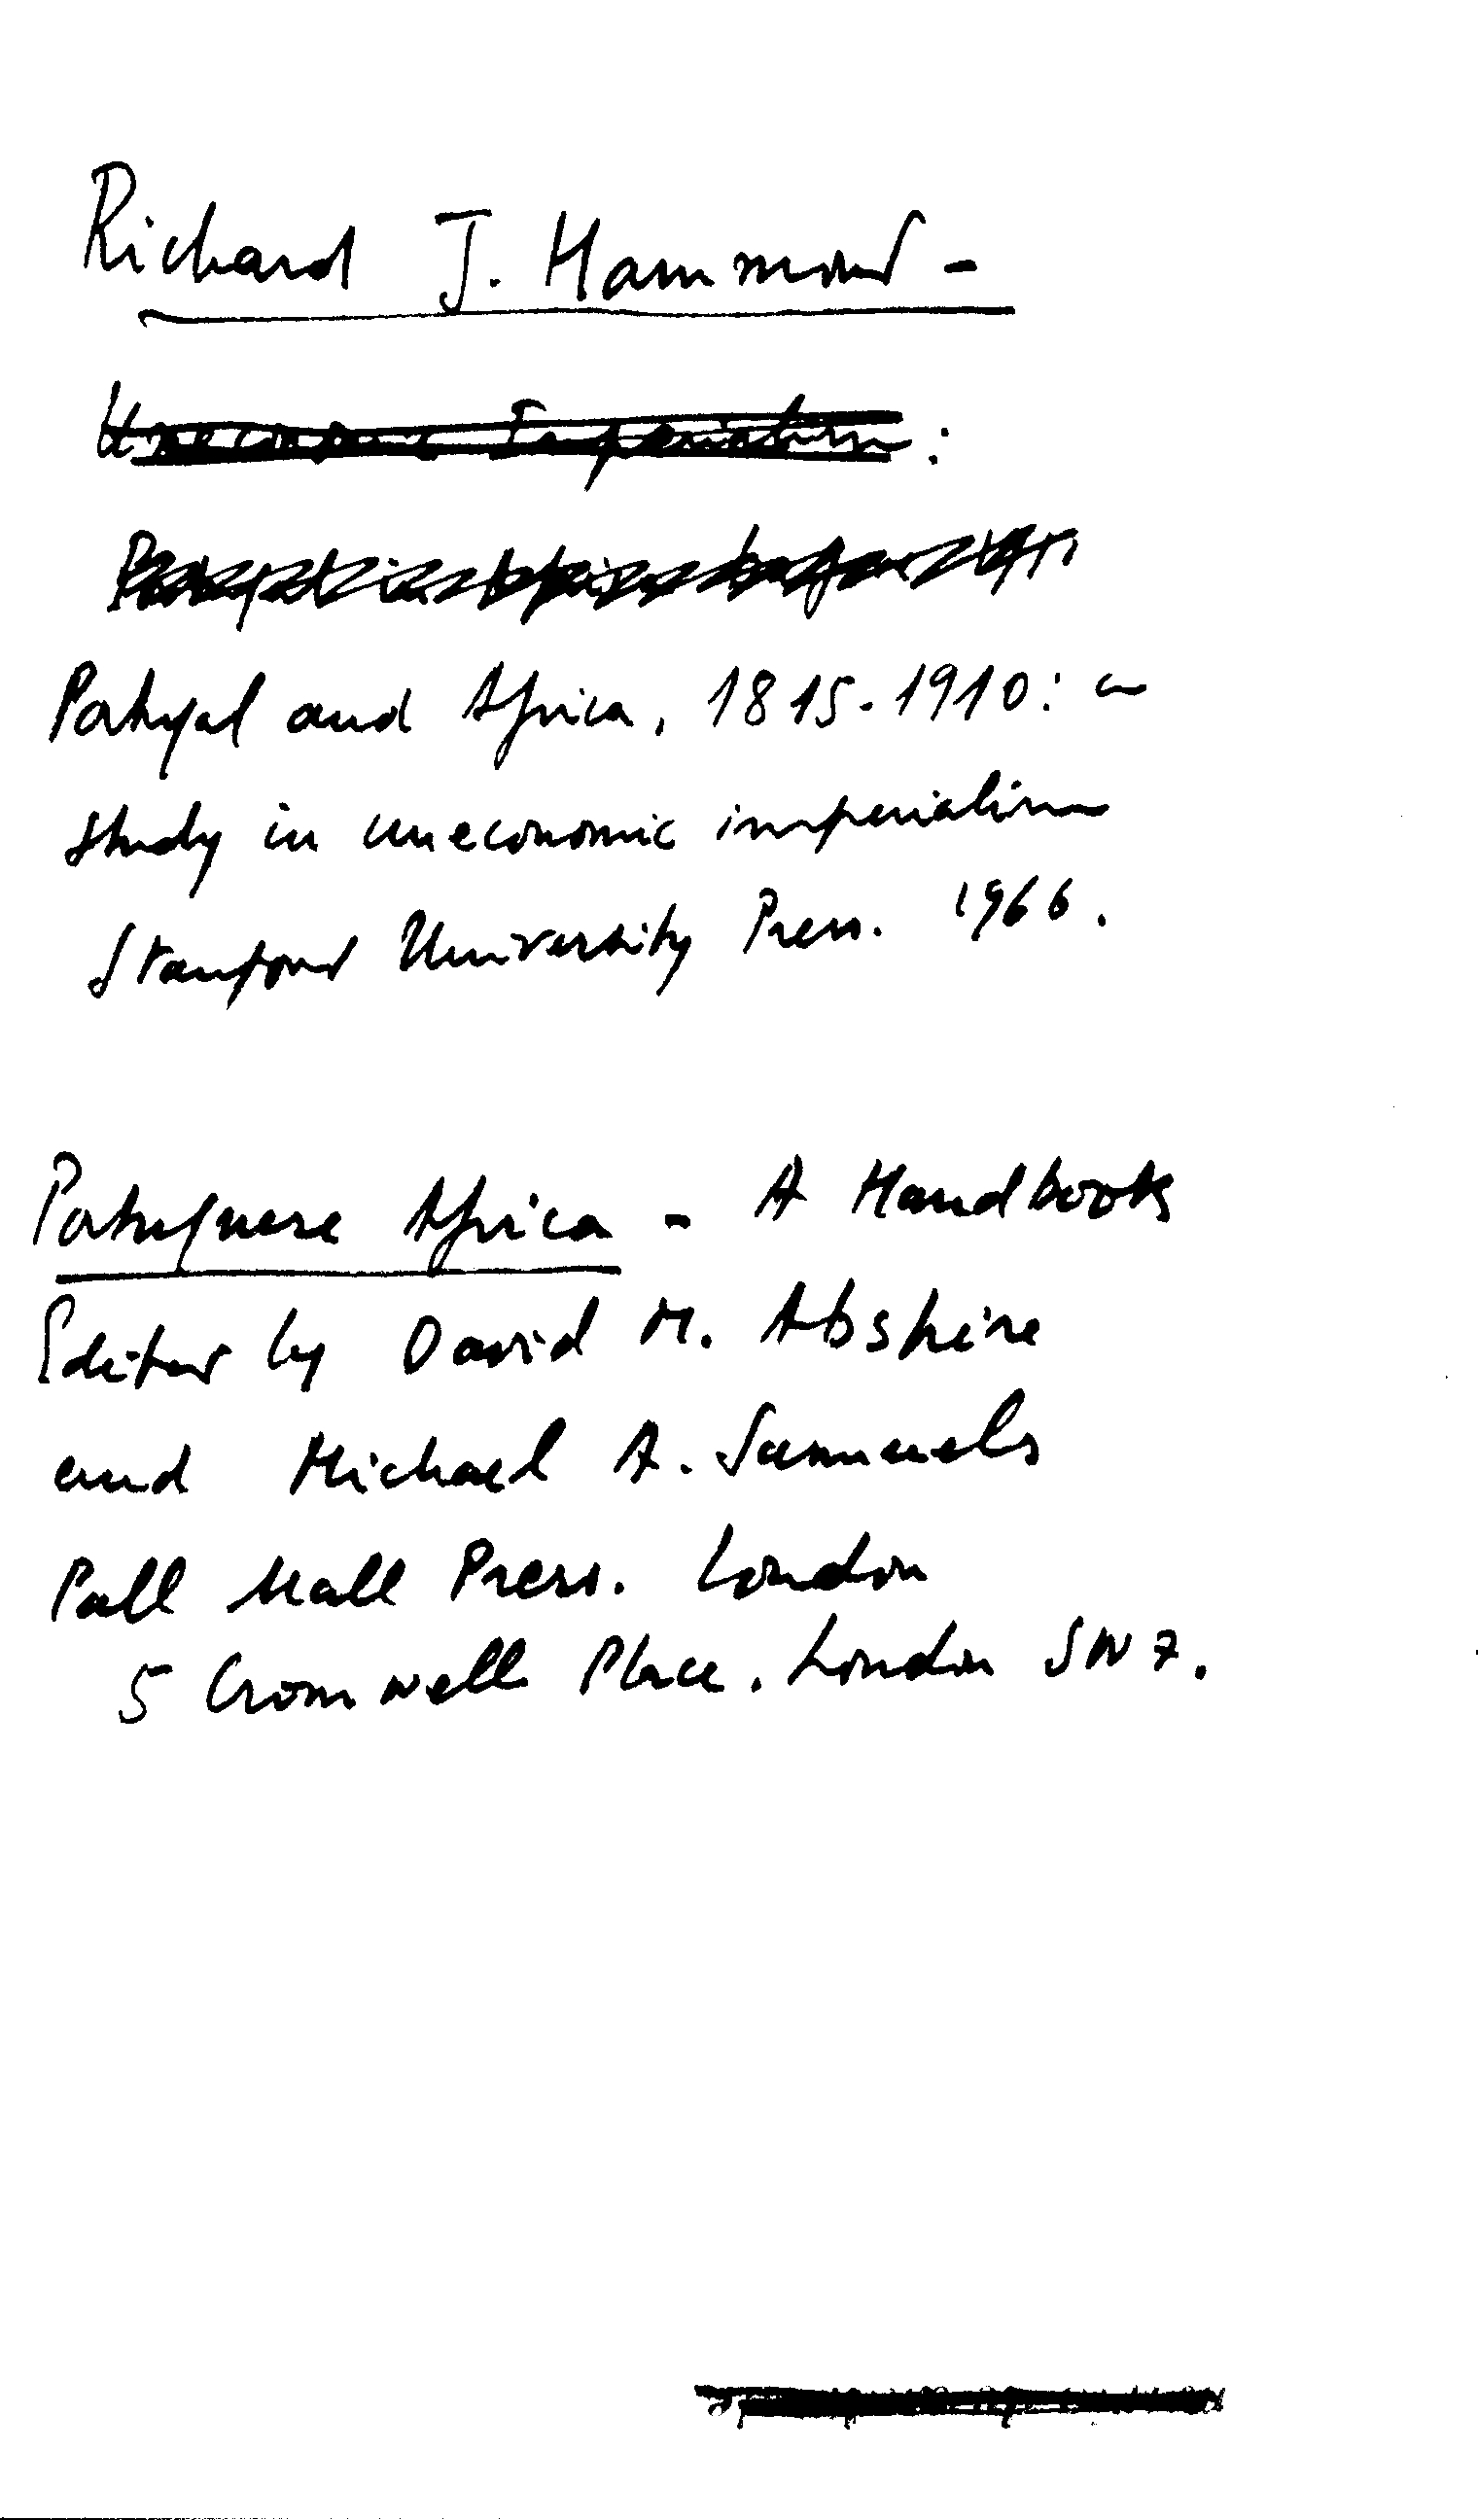 Richard J. Hammond -
Uneconomic Imperialism :
Portugal and Africa, 1815-1910: a
study in uneconomic imperialism
Stanford University Press. 1966.
Portuguese Africa - A Handbook
Edited by David M. Abshire
and Michael A. Samuels
Pall Mall Press. London
5 Cromwell Place. London SW7.